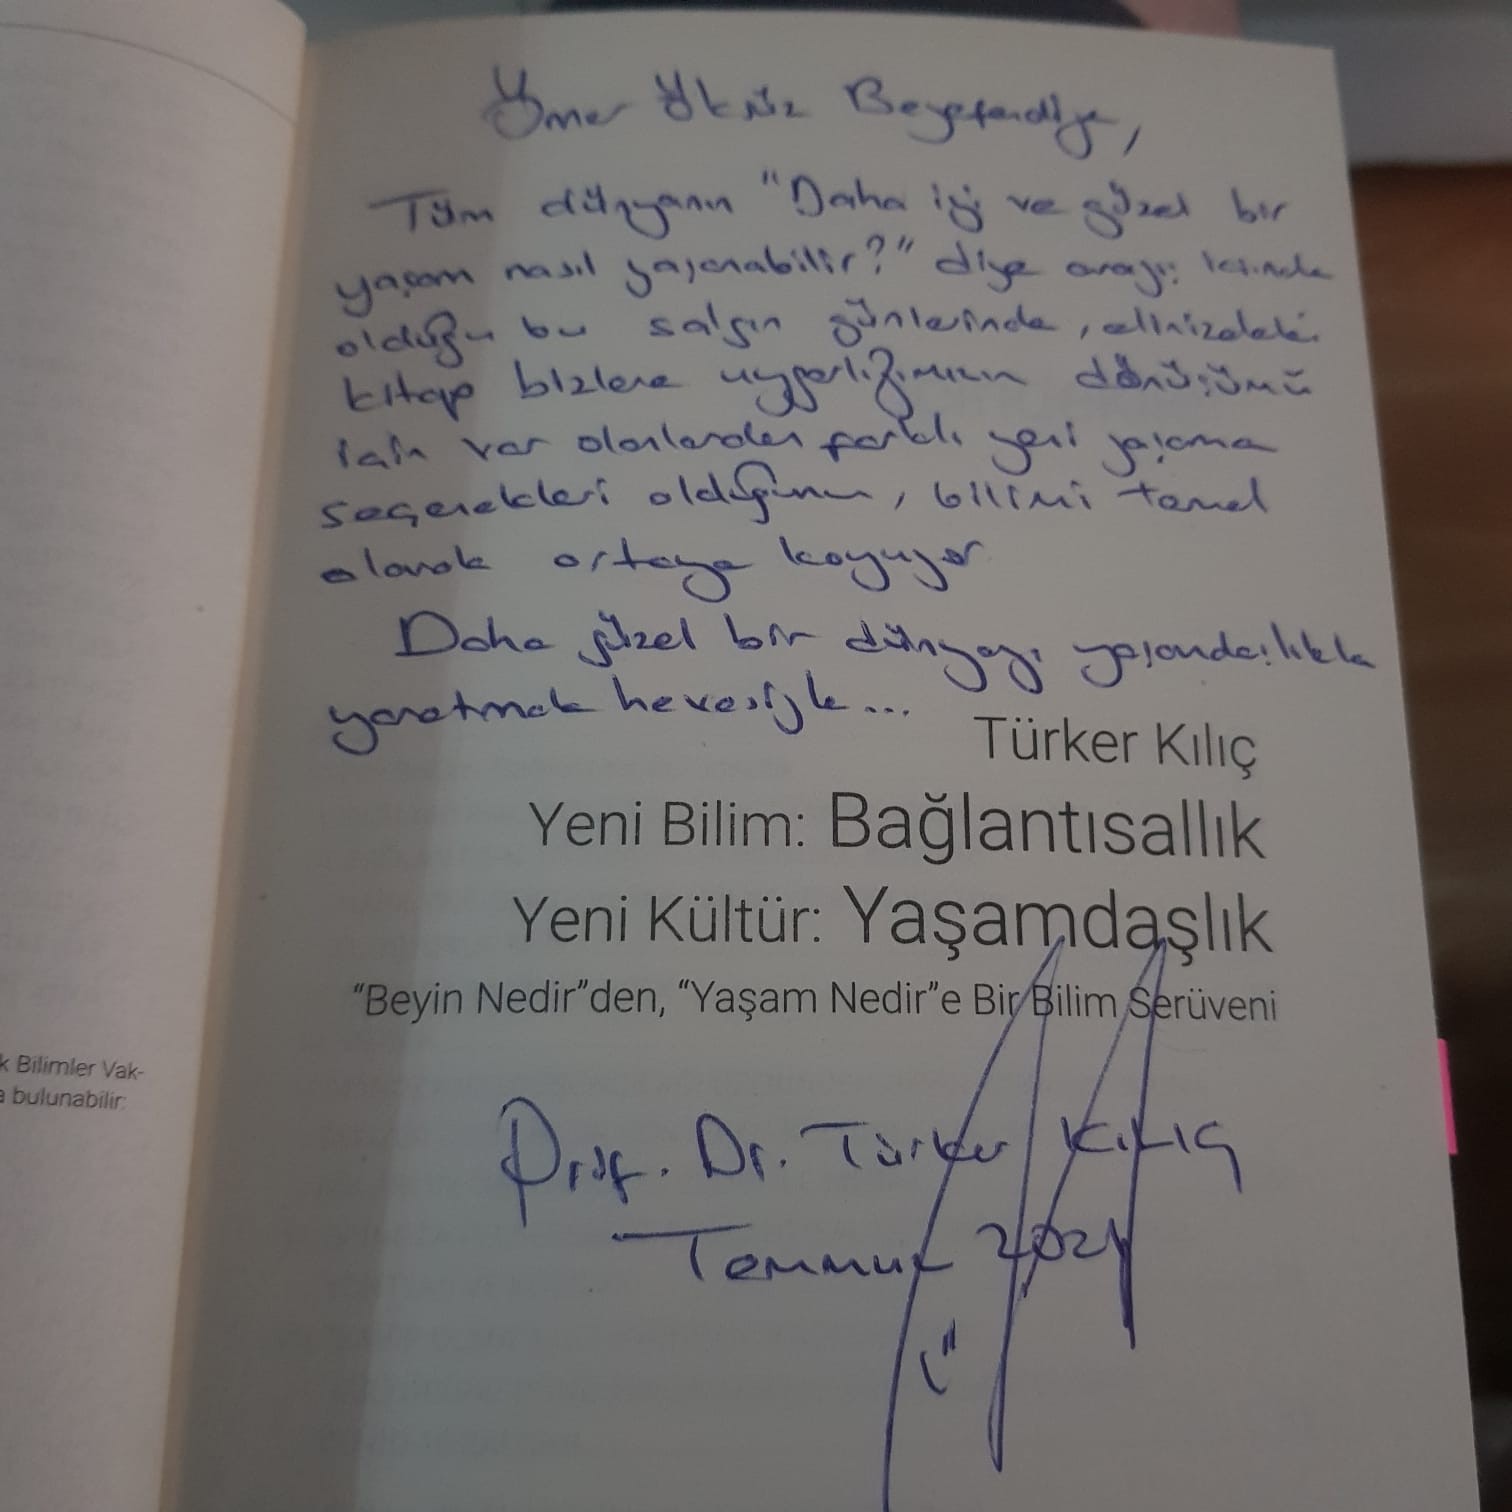 Ömer Öksüz Beyefendiye,
Tüm dünyanın "Daha iyi ve güzel bir
yaşam nasıl yaşanabilir?" diye arayış içinde
olduğu bu salgın günlerinde, elinizdeki
kitap bizlere uygarlığımızın dönüşümü
için var olanlardan farklı yeni yaşama
seçenekleri olduğunu, bilimi temel
alarak ortaya koyuyor
Daha güzel bir dünyayı yaşamdaşlıkla
yaratmak hevesiyle...
Türker Kılıç
Yeni Bilim: Bağlantısallık
Yeni Kültür: Yaşamdaşlık
"Beyin Nedir"den, "Yaşam Nedir"e Bir Bilim Serüveni
Prof. Dr. Türker KILIÇ
Temmuz 2021
k Bilimler Vak-
a bulunabilir: